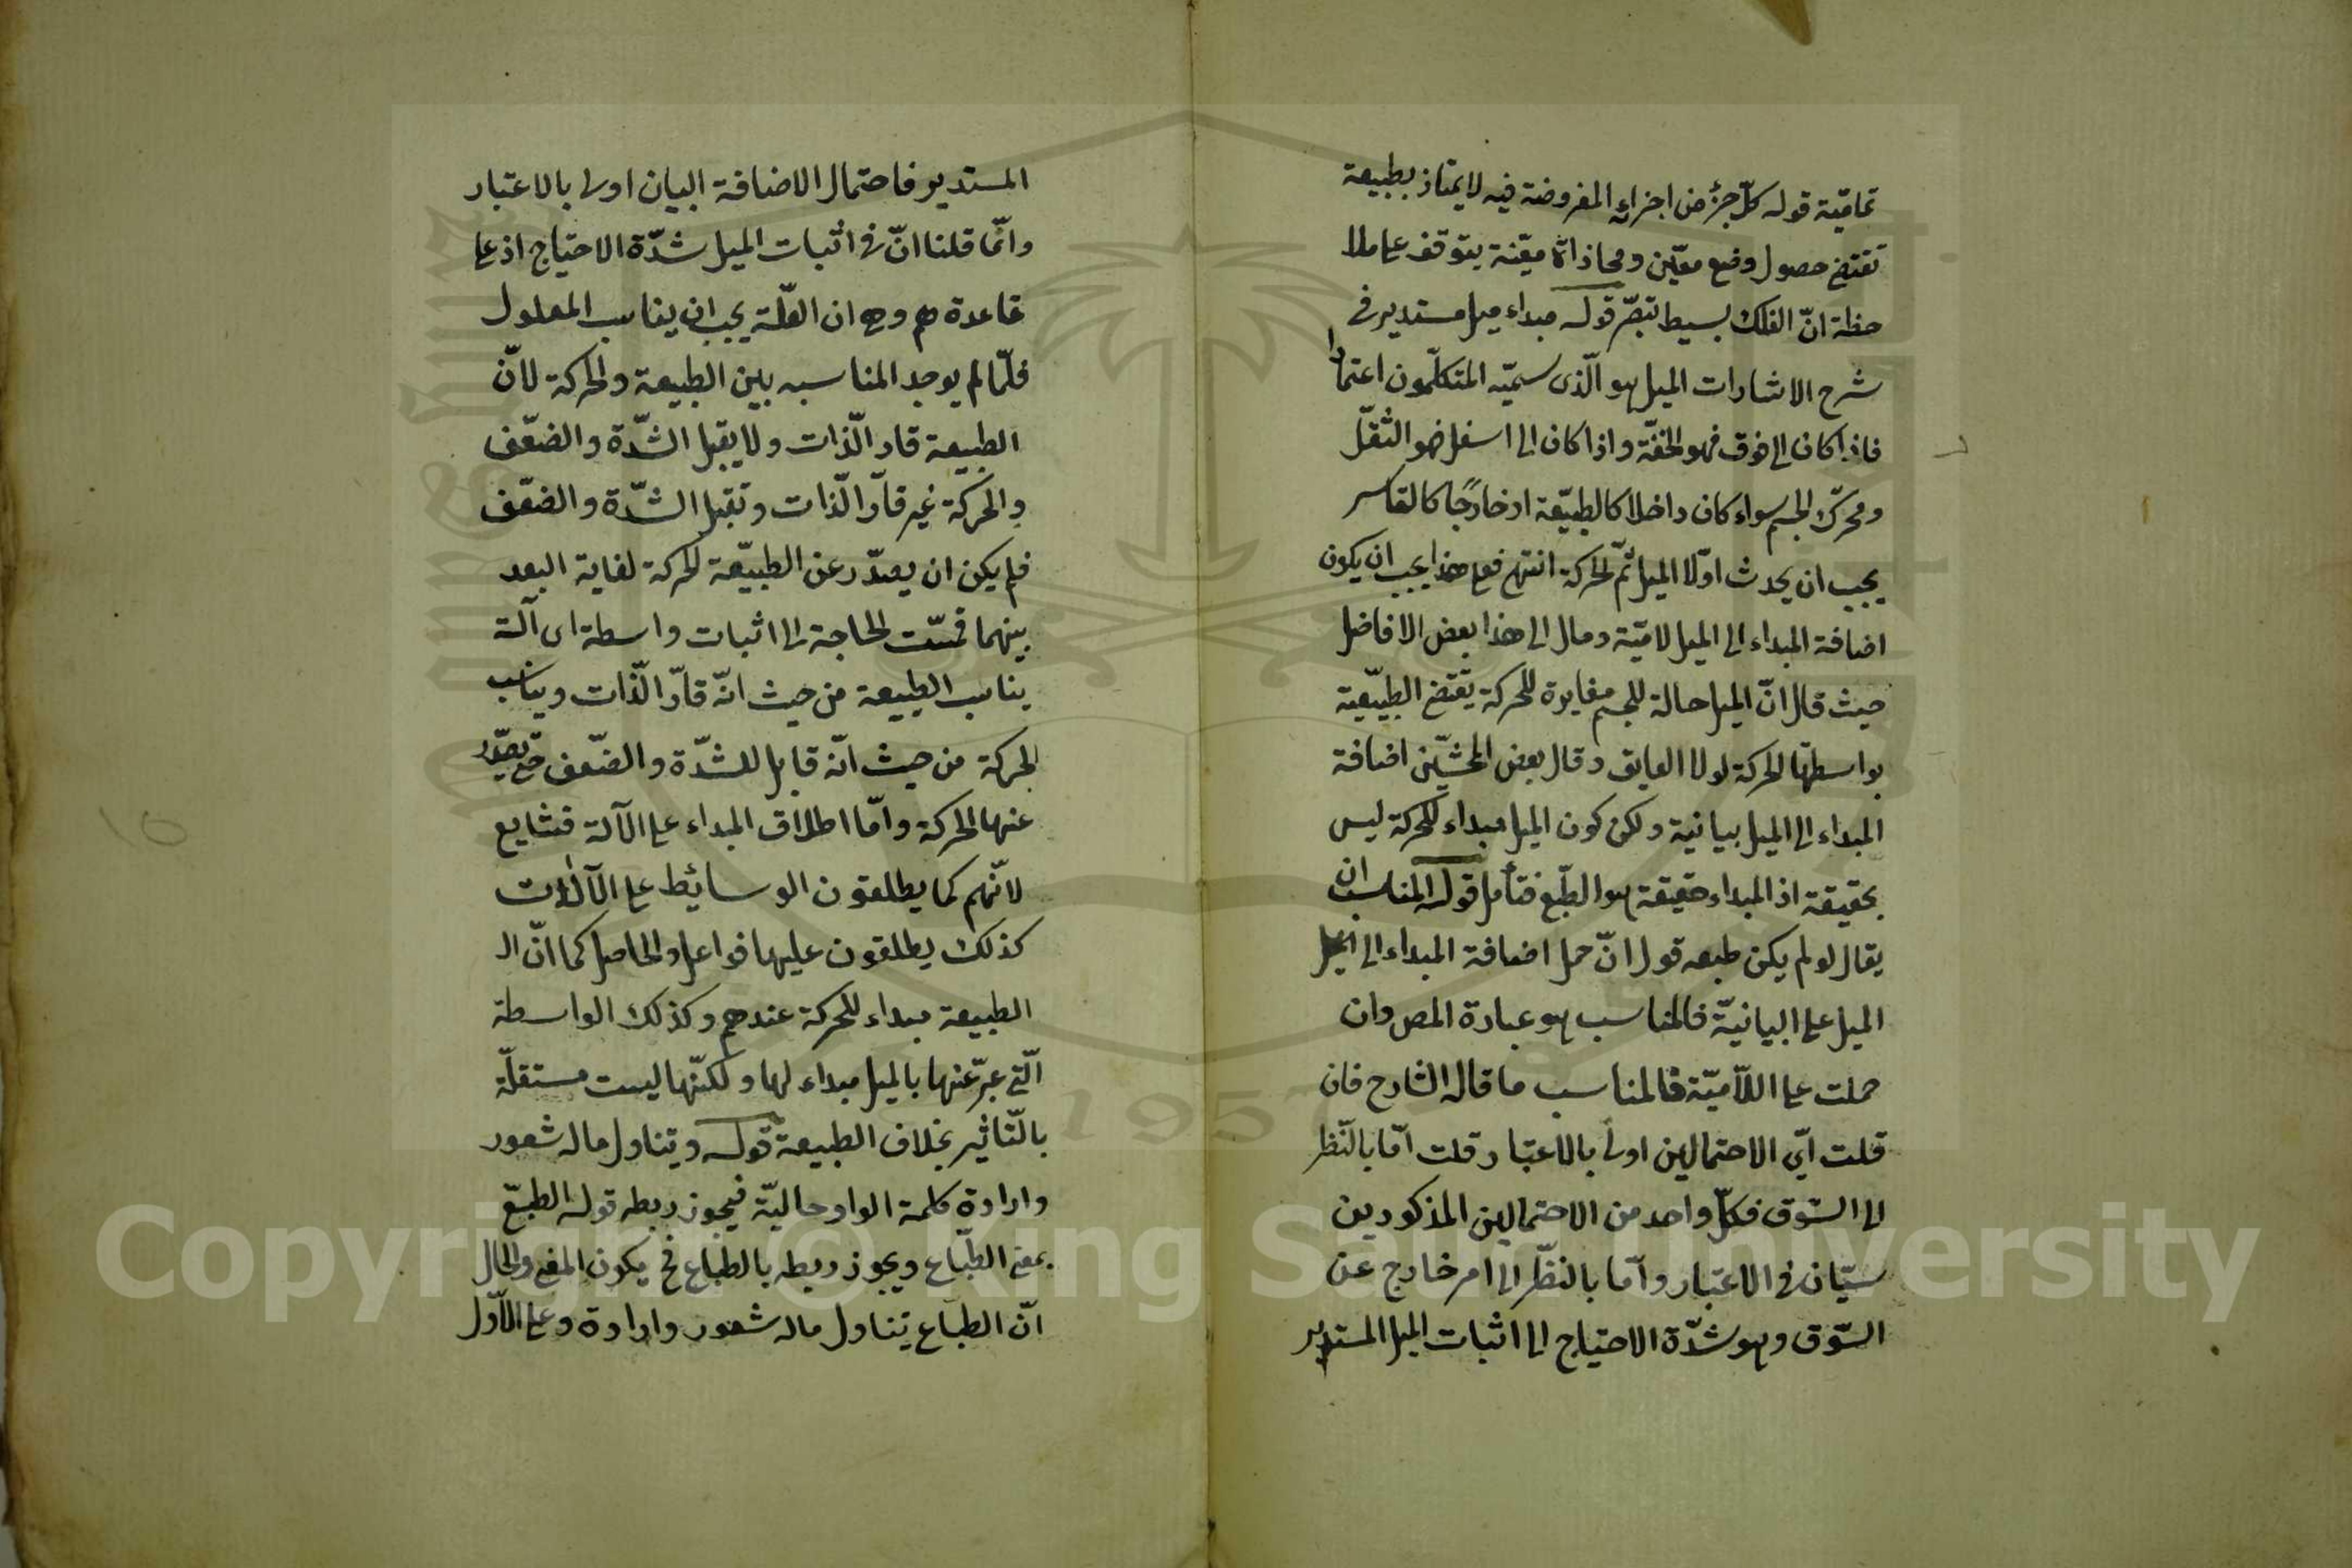 تماميّة قوله كلّ جزء من اجزائه المفروضة فيه لا يمتاز بطبيعة
تقتضى حصول وضع معيّن ومحاذاة معيّنة يتوقف على ملا
حظة انّ الفلك بسيط تبصّر قوله مبداء ميل مستدير فى
شرح الاشارات الميل هو الّذى سميّه المتكلّمون اعتمادا
فاذا كان الى فوق فهو الخفّة واذا كان الى اسفل فهو الثّقل
ومحرّك الجسم سواء كان داخلا كالطبيّعة او خارجًا كالقاسر
يجب ان يحدث اوّلا الميل ثمّ الحركة انتهى فعلى هذا يجب ان يكون
اضافة المبداء الى الميل لاميّة ومال الى هذا بعض الافاضل
حيث قال انّ الميل حالة للجسم مغايرة للحركة يقتضى الطبيّعية
بواسطتها الحركة لولا العايق وقال بعض المحشّين اضافة
المبداء الى الميل بيانية ولكن كون الميل مبداء للحركة ليس
بحقيقة اذ المبداء حقيقة هو الطبّع فتأمل قوله المناسب ان
يقال لو لم يكن طبعه قول انّ حمل اضافة المبداء الى
الميل على البيانيّة فالمناسب هو عبارة المص وان
حملت على اللاّميّة فالمناسب ما قاله الشارح فان
قلت اىّ الاحتمالين اولى بالاعتبار قلت امّا بالنّظر
الى السّوق فكلّ واحد من الاحتمالين المذكورين
سيّان فى الاعتبار وامّا بالنظّر الى امر خارج عن
السّوق وهو شدّة الاحتياج الى اثبات الميل المستدير
المستدير فاحتمال الاضافة البيان اولى بالاعتبار
وانّما قلنا انّ فى اثبات الميل شدّة الاحتياج اذ على
قاعدة هم وهى ان العلّة يجب ان يناسب المعلول
فلمّا لم يوجد المناسبه بين الطبيعة والحركة لانّ
الطبيعة قار الّذات ولا يقبل الشدّة والضعّف
والحركة غير قارّ الّذات وتقبل الشدّة والضعّف
فلم يكن ان يصدّر عن الطبيّعة الحركة لغاية البعد
بينهما فمسّت الحاجة الى اثبات واسطة اى آلة
يناسب الطبيعة من حيث انّه قارّ الّذات ويناسب
الحركة من حيث انّه قابل للشدّة والضّعف حتى يصدّر
عنها الحركة وامّا اطلاق المبداء على الآلة فشايع
لانّهم كما يطلقون الوسائط على الآلات
كذلك يطلقون عليها فواعل والحاصل كما انّ الـ
الطبيعة مبداء للحركة عندهم وكذلك الواسطة
الّتى عبّر عنها بالميل مبداء لها ولكنّها ليست مستقلّة
بالتّاثير بخلاف الطبيعة قوله ويتناول ماله شعور
وارادة كلمة الواو حاليّة فيجوز ربطه قوله الطبّع
بمعنى الطّباع ويجوز ربطه بالطبّاع فح يكون المعنى والحال
انّ الطباع يتناول ماله شعور وارادة وعلى الاّوّل